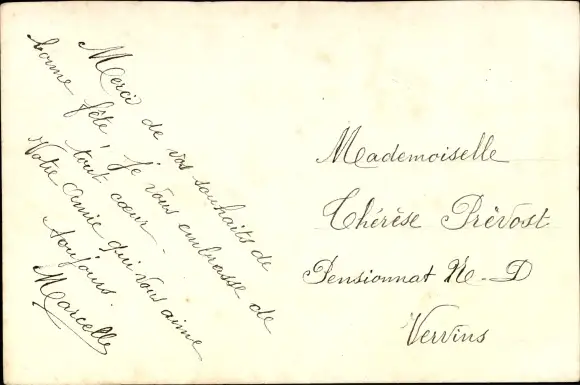 Merci de vos souhaits de
bonne fête ! Je vous embrasse de
tout cœur.
Votre amie qui vous aime
toujours.
Marcelle
Mademoiselle
Thérèse Prévost
Pensionnat N-D
Vervins